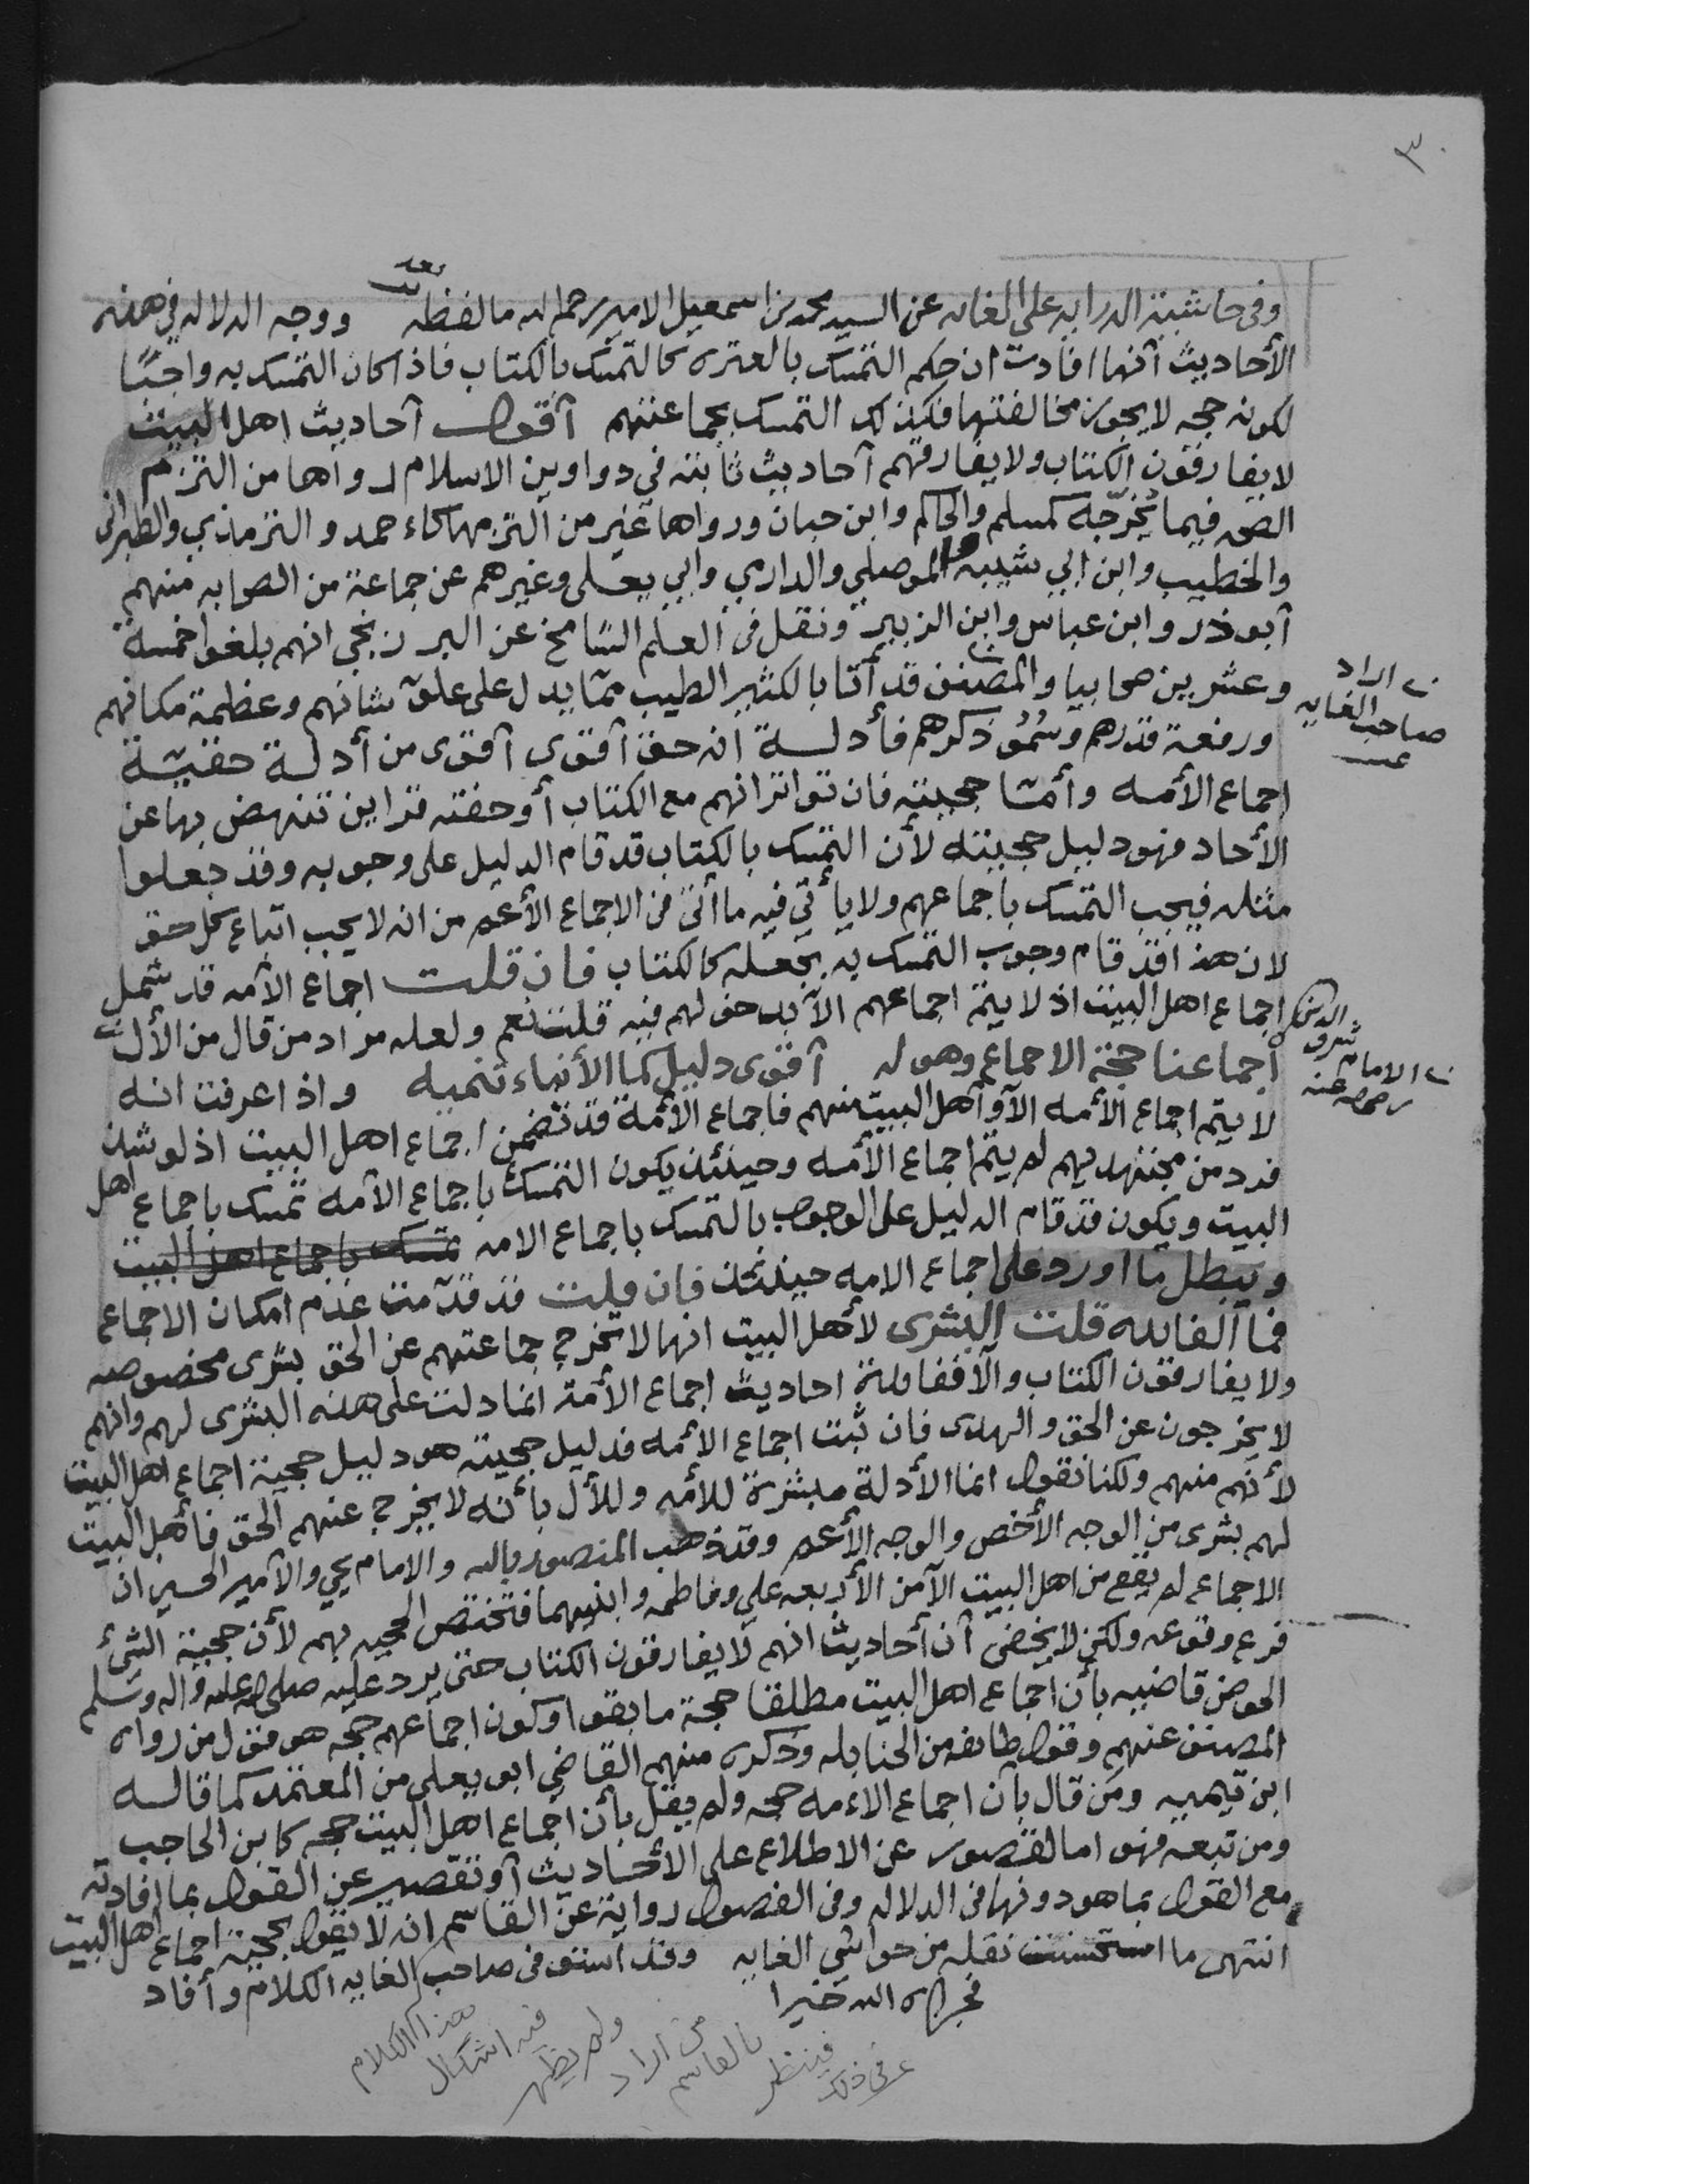 ٣٠
وفي حاشية الدرايه على الغايه عن السيد محمد بن اسمعيل الامير رحمه الله مالفظه ووجه الدلاله في هذه
الأحاديث أنها افادت ان حكم التمسك بالعتره كالتمسك بالكتاب فاذا كان التمسك به واجبًا
لكونه حجه لا يجوز مخالفتها فكذلك التمسك بجماعتهم أقول أحاديث اهل البيت
لا يفارقون الكتاب ولا يفارقهم أحاديث ثابته في دواوين الاسلام رواها من التزم
الصحه فيما يُخرّجه كمسلم والحاكم وابن حبان ورواها غير من التزمها كاحمد والترمذي والطبراني
والخطيب وابن ابي شيبه والموصلي والدارمي وابي يعلى وغيرهم عن جماعة من الصحابه منهم
أبو ذر وابن عباس وابن الزبير ونقل في العلم الشامخ عن البرزنجي انهم بلغوا خمسة
وعشرين صحابيا والمصنف قد أتا بالكثير الطيب ممّا يدل على علوّ شانهم وعظمة مكانهم
ن اراد
صاحب الغايه
ورفعة قدرهم وسُمُوّ ذكرهم فأدلــة انه حق أقوى أقوى من أدلــة حقيّــة
اجماع الأمــه وأمّــا حجيته فان تواتر انهم مع الكتاب أو حفته قراين تنهض بها عن
الأحاد فهو دليل حجيته لأن التمسك بالكتاب قد قام الدليل على وجوبه وقد جعلوا
مثله فيجب التمسك باجماعهم ولا يأتي فيه ما أتى في الاجماع الأعم من انه لا يجب اتباع كل حق
لان هذا قد قام وجوب التمسك به بجعله كالكتاب فان قلت اجماع الأمه قد شمل
اجماع اهل البيت اذ لا يتم اجماعهم الآ بدخولهم فيه قلت نعم ولعله مراد من قال من الأل
ن الامام شرف الدين
رضي الله عنه
اجماعنا حجة الاجماع وهو له أقوى دليل كما الأنباء تنميه واذا عرفت انــه
لا يتم اجماع الأمــه الآ وأهل البيت منهم فاجماع الأمّة قد تضمن اجماع اهل البيت اذ لو شذ
فرد من مجتهديهم لم يتم اجماع الأمــه وحينئذ يكون التمسك باجماع الأمه تمسك باجماع اهل
البيت ويكون قد قام الدليل على الوجوب بالتمسك باجماع الامه تمسك باجماع اهل البيت
ويبطل ما اورد على اجماع الامه حينئذ فان قلت قد قدّمت عدم امكان الاجماع
فما الفايده قلت البشرى لأهل البيت انها لا تخرج جماعتهم عن الحق بشرى مخصوصه
ولا يفارقون الكتاب والآ فقاولة احاديث اجماع الأمّة انما دلت على هذه البشرى لهم وانهم
لا يخرجون عن الحق والهدى فان ثبت اجماع الأمه فدليل حجيته هو دليل حجية اجماع اهل البيت
لأنهم منهم ولكنا نقول انما الأدلة مبشرة للأمه وللأل بأنه لا يخرج عنهم الحق فأهل البيت
لهم بشرى من الوجه الأخص والوجه الأعم وقد ذهب المنصور بالله والامام يحيى والأمير الحسين ان
الاجماع لم يقع من اهل البيت الآ من الأربعه علي وفاطمه وابنيهما فتختص الحجيه بهم لأن حجية الشئ
فرع وقوعه ولكن لا يخفى أن أحاديث انهم لا يفارقون الكتاب حتى يرد عليه صلى الله عليه واله وسلم
الحوض قاضيه بأن اجماع اهل البيت مطلقا حجة ما بقوا وكون اجماعهم حجه هو قول من رواه
المصنف عنهم وقول طايفه من الحنابله وذكره منهم القاضي ابو يعلى من المعتمد كما قالــه
ابن تيميه ومن قال بأن اجماع الأمه حجه ولم يقل بأن اجماع اهل البيت حجه كابن الحاجب
ومن تبعه فهو اما لقصور عن الاطلاع على الأحــاديث أو تقصير عن القول بما افادته
مع القول بما هو دونها في الدلاله وفي الفصول رواية عن القاسم انه لا يقول بحجية اجماع اهل البيت
انتهى ما استحسنت نقله من حواشي الغايه وقد استوفى صاحب الغايه الكلام وأفاد
فجزاه الله خيرا
هذا الكلام
فيه اشكال
ولم يظهر
من اراد
بالقاسم
فينظر
في ذلك